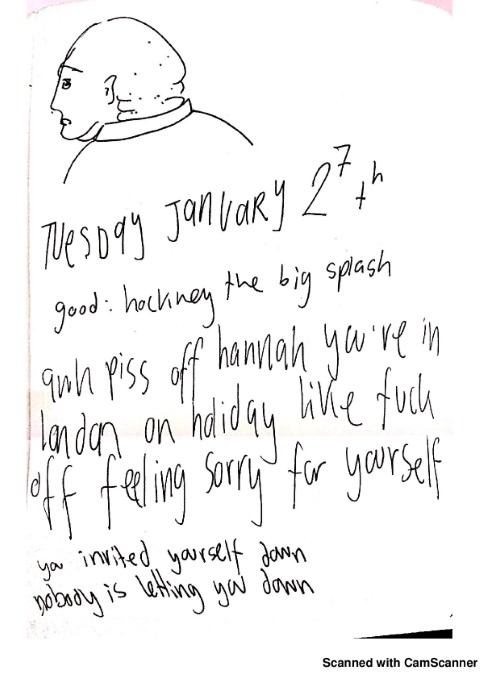 Tuesday January 27th
good: hockney the big splash
awh piss off hannah you're in
london on holiday like fuck
off feeling sorry for yourself
you invited yourself down
nobody is letting you down
Scanned with CamScanner